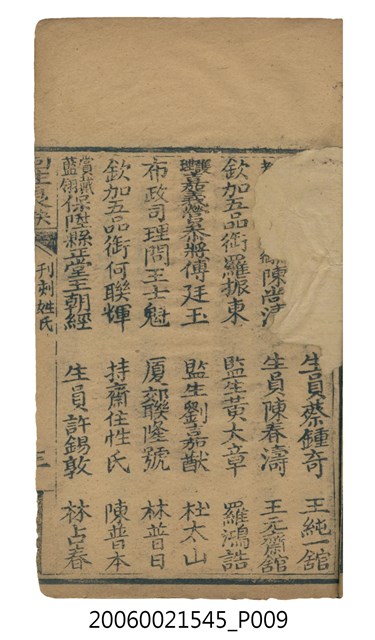 生員蔡鍾奇 王純一舘
陳尚 生員陳春濤 王元齋舘
欽加五品銜羅振東 監生黃大章 羅鴻誥
護理嘉義營叅將傅廷玉 監生劉嘉猷 杜太山
布政司理問王士魁 厦郊聯隆號 林普日
欽加五品銜何聯輝 持齋住性氏 陳普本
賞戴藍翎保陞縣正堂王朝經 生員許錫敦 林占春
刊刻姓氏 三
20060021545_P009